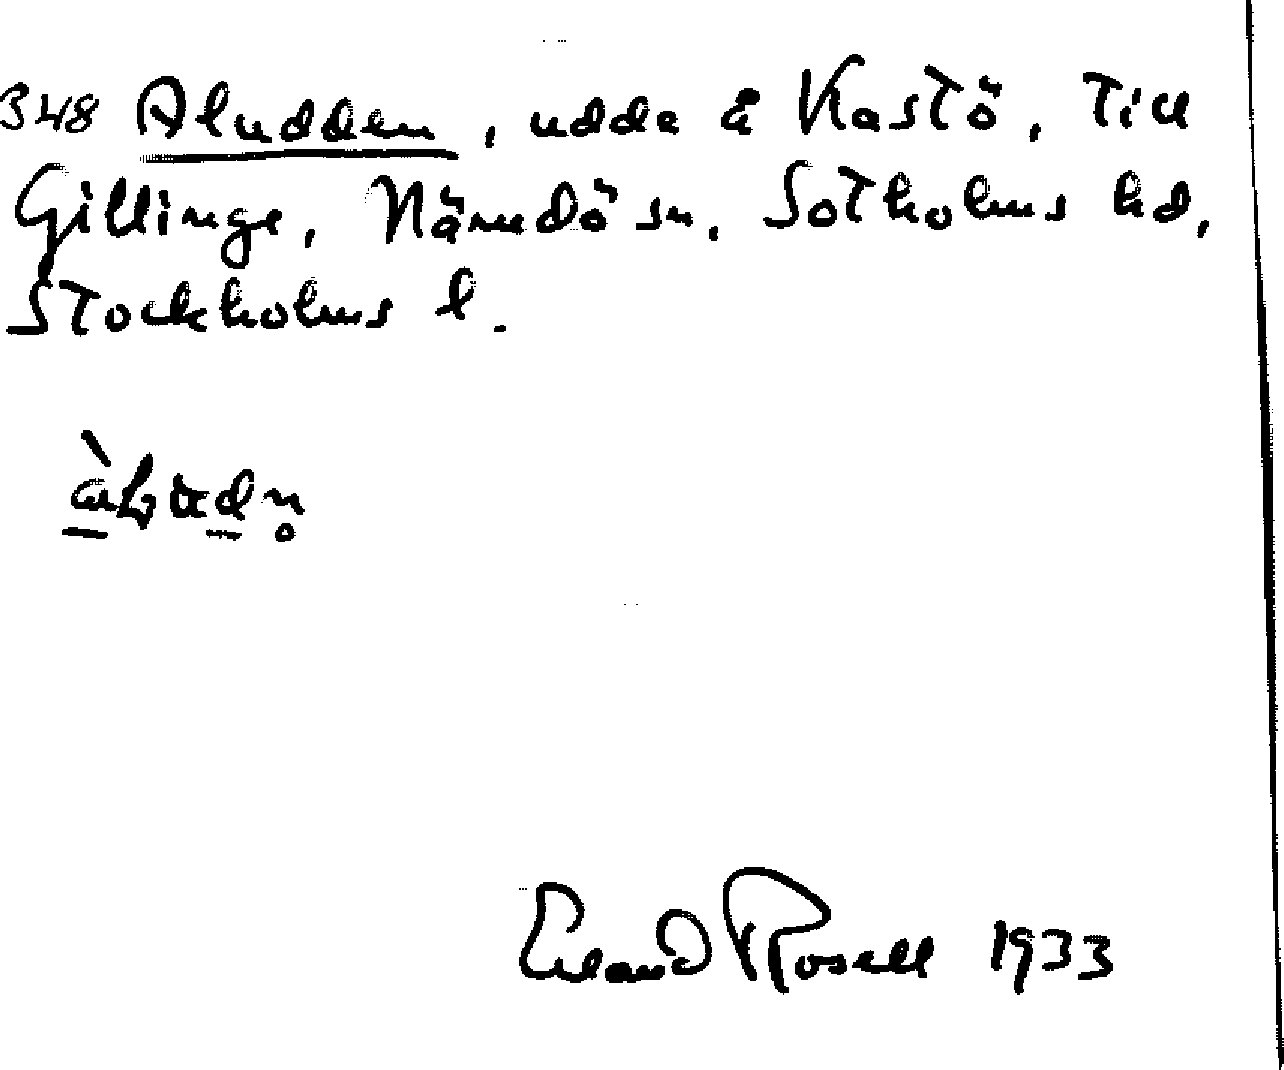 348 Aludden, udde å Kastö, till
Gillinge, Nämdö sn, Sotholms hd,
Stockholms l.
Erland Rosell 1933